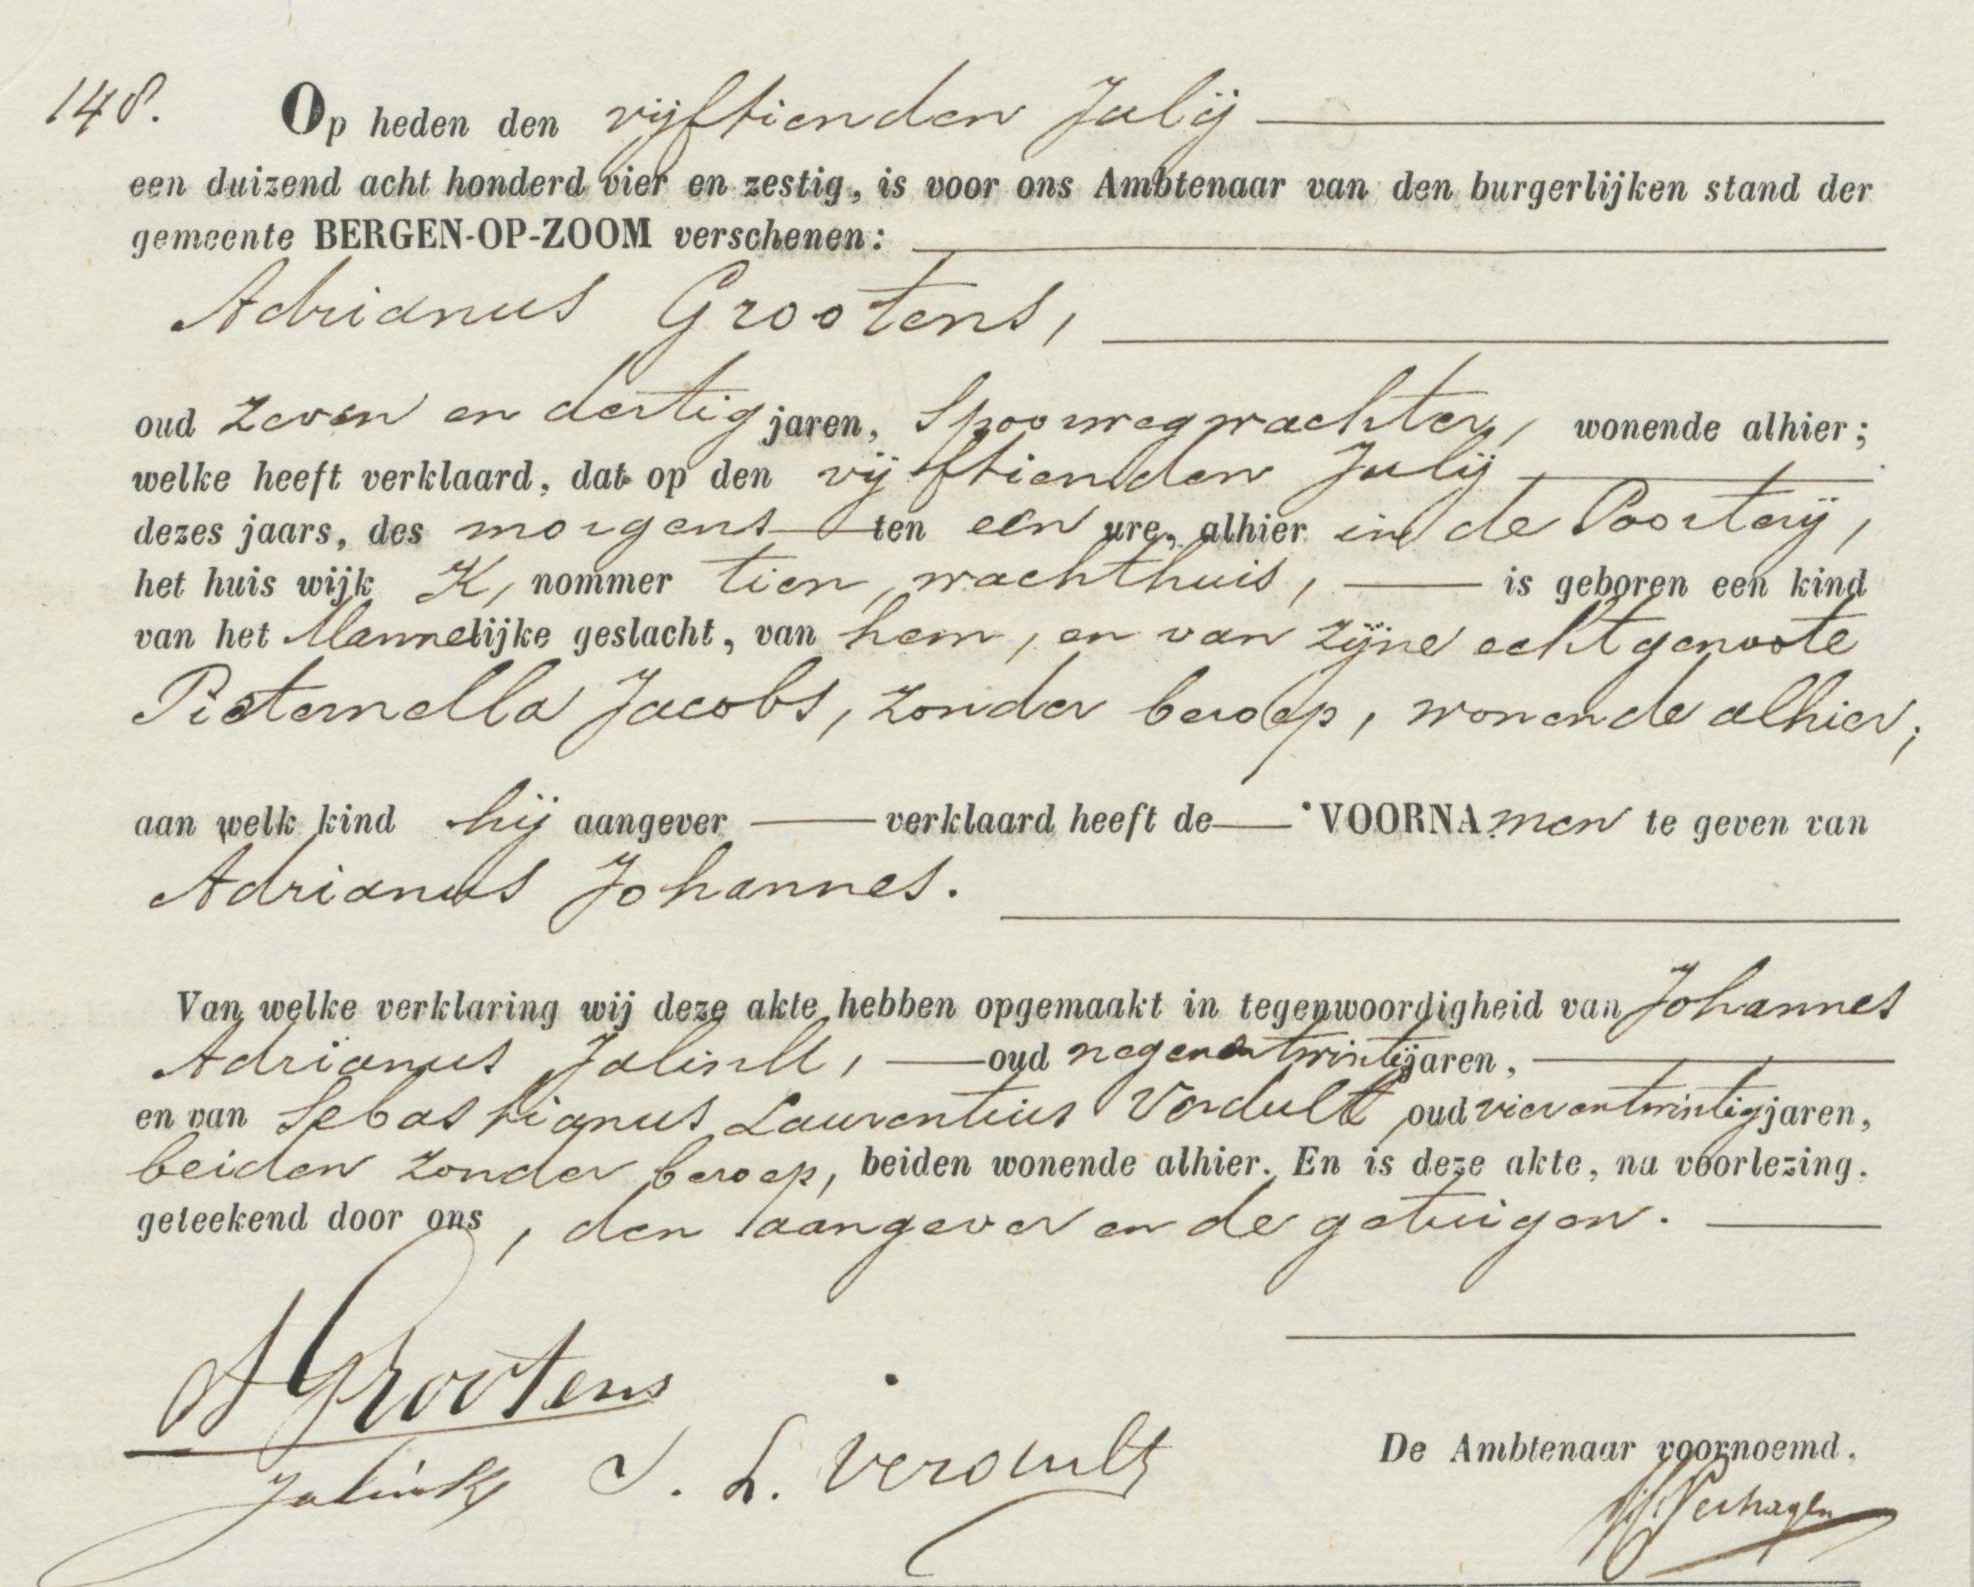 148. Op heden den vijftienden Julij
een duizend acht honderd vier en zestig, is voor ons Ambtenaar van den burgerlijken stand der
gemeente BERGEN-OP-ZOOM verschenen:
Adrianus Grootens,
oud zeven en dertig jaren, Spoorwegwachter, wonende alhier;
welke heeft verklaard, dat op den vijftienden Julij
dezes jaars, des morgens ten een ure, alhier in de Poorterij,
het huis wijk K, nommer tien, wachthuis, is geboren een kind
van het Mannelijke geslacht, van hem, en van zijne echtgenoote
Pieternella Jacobs, zonder beroep, wonende alhier;
aan welk kind hij aangever verklaard heeft de VOORNAmen te geven van
Adrianus Johannes.
Van welke verklaring wij deze akte hebben opgemaakt in tegenwoordigheid van Johannes
Adrianus Jalink, oud negenentwintig jaren,
en van Sebastianus Laurentius Verdult oud vierentwintig jaren,
beiden zonder beroep, beiden wonende alhier. En is deze akte, na voorlezing,
geteekend door ons, den aangever en de getuigen.
A Grootens
Jalink S. L. Verdult
De Ambtenaar voornoemd.
Verhagen